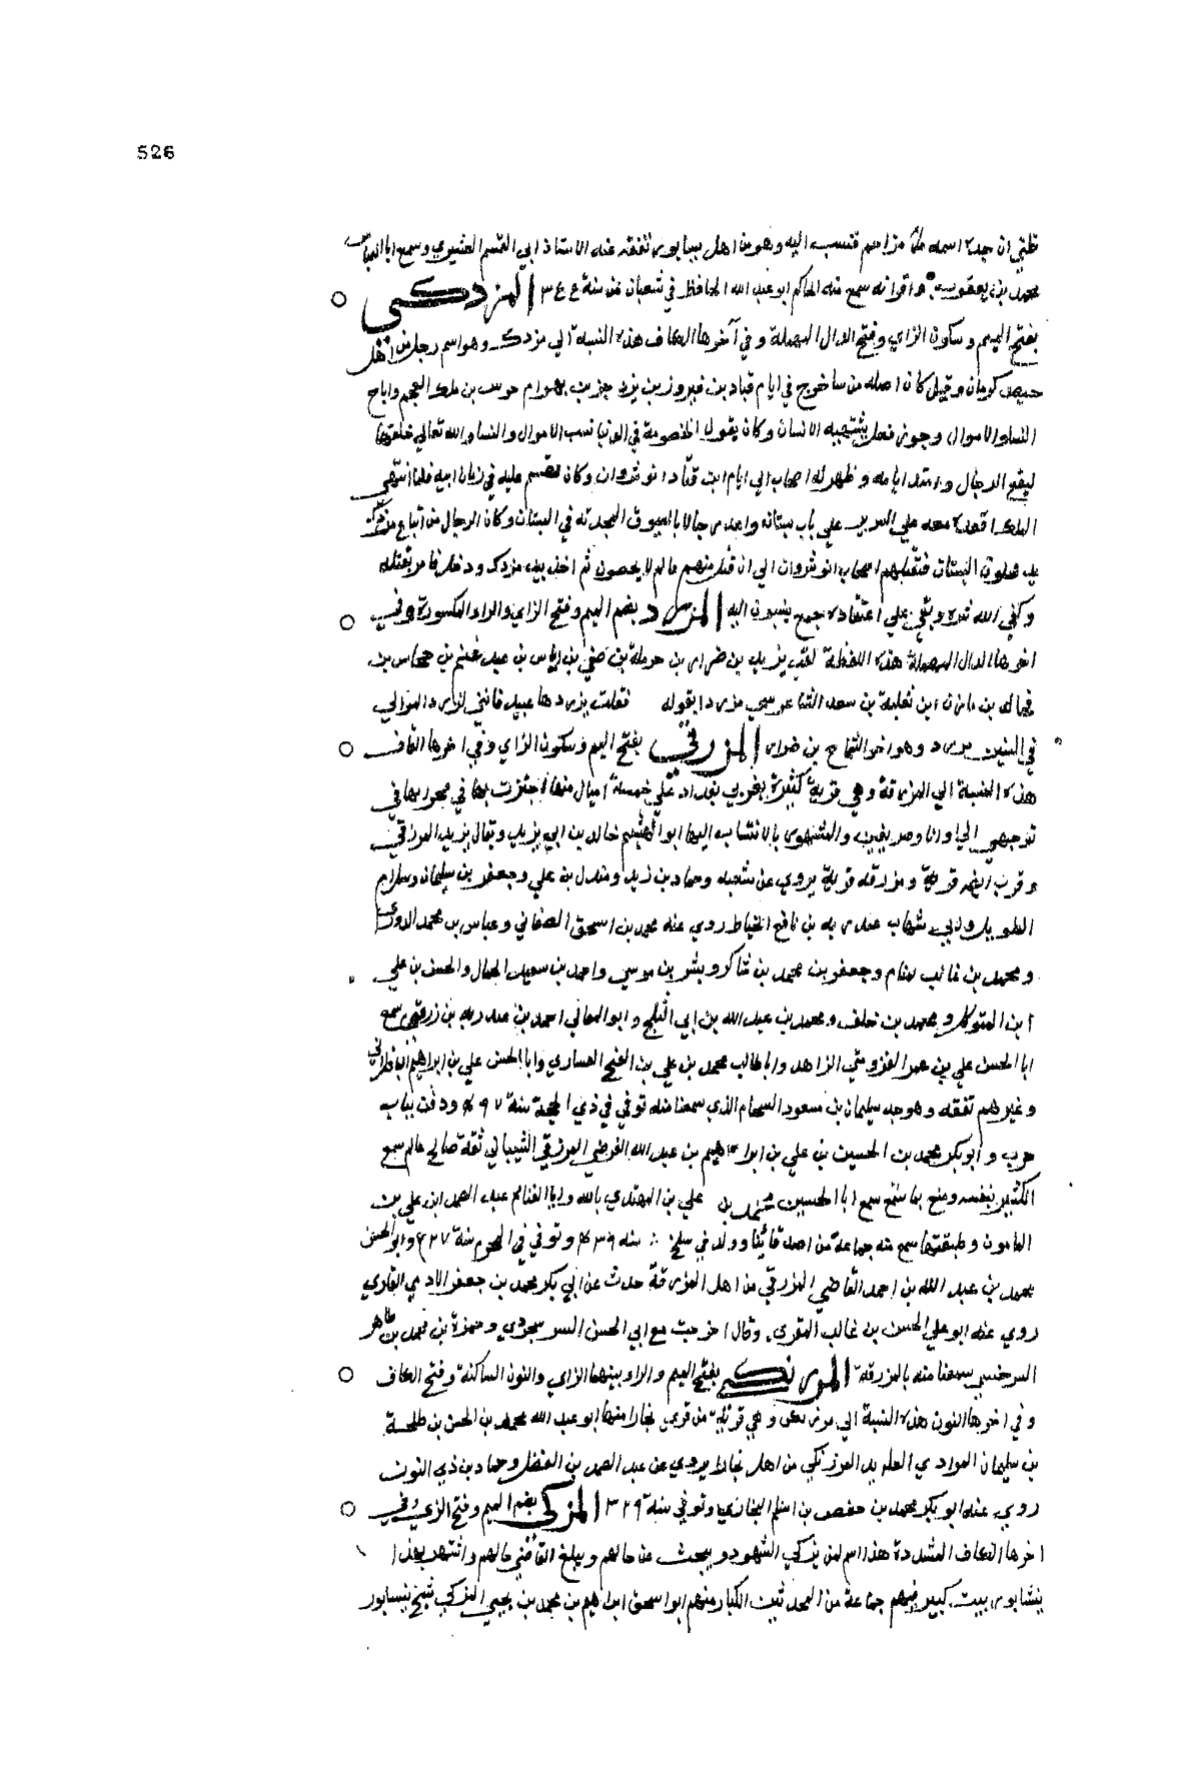 526
ظني ان جده اسمه مزاحم فنسب اليه وهو من اهل نيسابور تفقه عند الاستاذ ابي القسم القشيري وسمع ابا العباس
محمد بن يعقوب واقرانه سمع منه الحاكم ابو عبد الله الحافظ في شعبان من سنة ع ع ٣ المزدكي
بفتح الميم وسكون الزاي وفتح الدال المهملة وفي آخرها الكاف هذه النسبة الي مزدك وهو اسم رجل من اهل
وقيل كان اصله من خرج في ايام قباد بن فيروز بن يزدجرد بن بهرام بن ملك العجم واباح
النساء والاموال وجوز فعل يشتهيه الانسان وكان يقول الخصومة في الدنيا نسب الاموال والنساء والله تعالي خلقها
ليقع الرجال وامتد ايامه وظهر له اصحاب الي ايام ابن قباد انوشروان وكان عليه في زمان ابيه فلما انتهي
الملك اقعده معه علي السرير علي باب بستانه واعد رجالا بالسيوف المجردة في البستان وكان الرجال من اتباع مزدك
يدخلون البستان فتقتلهم اصحاب انوشروان الي ان قتل منهم عالم لا يحصون ثم اخذ بيد مزدك ودخل فامر بقتله
وكفي الله شره وبقي علي اعتقاده جمع ينسبون اليه المزرد بضم الميم وفتح الزاي والراء المكسورة وفي
اخرها الدال المهملة هذه اللفظة لقب يزيد بن ضرار بن حرملة بن صيفي بن اياس بن عبد غنم بن جحاش بن
بن مازن ابن ثعلبة بن سعد الشاعر سمي مزردا بقوله فقلت يزردها عبيد فانني لزرد الموالي
في السنين مزرد وهو اخو الشماخ بن ضرار المزرقي بفتح الميم وسكون الزاي وفي اخرها القاف
هذه النسبة الي المزرقة وهي قرية كبيرة بغربي بغداد علي خمسة اميال منها اجتزت بها في
توجهي الي اوانا وصريفين والمشهور بالانتساب اليها ابو الهيثم خالد بن ابي يزيد ويقال يزيد المزرقي
قرية ومزرقة قرية يروي عن شعبه وحماد بن زيد ومندل بن علي وجعفر بن سليمان وسلام
الطويل وابي شهاب عبد ربه بن نافع الخياط روي عنه محمد بن اسحق الصغاني وعباس بن محمد الدوري
ومحمد بن غالب تمتام وجعفر بن محمد بن شاكر وبشر بن موسي واحمد بن سعيد الجمال والحسن بن علي
ابن المتوكل ومحمد بن خلف ومحمد بن عبد الله بن ابي الثلج وابو المعالي احمد بن عبد ربه بن زرقي سمع
ابا الحسن علي بن عمر القزويني الزاهد وابا طالب محمد بن علي بن الفتح العشاري وابا الحسن علي بن ابراهيم الباقلاني
وغيرهم تفقه وهو جد سليمان بن مسعود الشحام الذي سمعنا منه توفي في ذي الحجة سنة ٤٩٧ ودفن بباب
حرب وابو بكر محمد بن الحسين بن علي بن ابراهيم بن عبد الله الفرضي المزرقي الشيباني ثقة صالح عالم سمع
الكثير بنفسه ومتع بما سمع سمع ابا الحسين محمد بن علي بن المهتدي بالله وابا الغنائم عبد الصمد ابن علي بن
المامون وطبقتهما سمع منه جماعة من اصدقائنا وولد في سلخ سنه ٤٣٩ وتوفي في المحرم سنة ٥٢٧ وابو الحسن
محمد بن عبد الله بن احمد القاضي المزرقي من اهل المزرقة حدث عن ابي بكر محمد بن جعفر الادمي القاري
روي عنه ابو علي الحسن بن غالب المقري وقال اخرجت مع ابي الحسن السوسنجردي وحمزة بن محمد بن طاهر
السرخسي سمعنا منه بالمزرقة المرزنكي بفتح الميم والراء بينهما الزاي والنون الساكنة وفتح الكاف
وفي اخرها النون هذه النسبة الي وهي قرية من قري بخارا منها ابو عبد الله محمد بن الحسن بن طلحة
بن سليمان المرادي من اهل بخارا يروي عن عبد الصمد بن الفضل وحماد بن ذي النون
روي عنه ابو بكر محمد بن حفص بن اسلم البخاري وتوفي سنة ٣٢٩ المزكي بضم الميم وفتح الزي وفي
اخرها الكاف المشددة هذا اسم لمن يزكي الشهود ويبحث عن حالهم ويبلغ القاضي حالهم واشتهر بهذا
نيشابور بيت كبير منهم جماعة من المحدثين الكبار منهم ابو اسحق ابراهيم بن محمد بن يحيي المزكي شيخ نيسابور